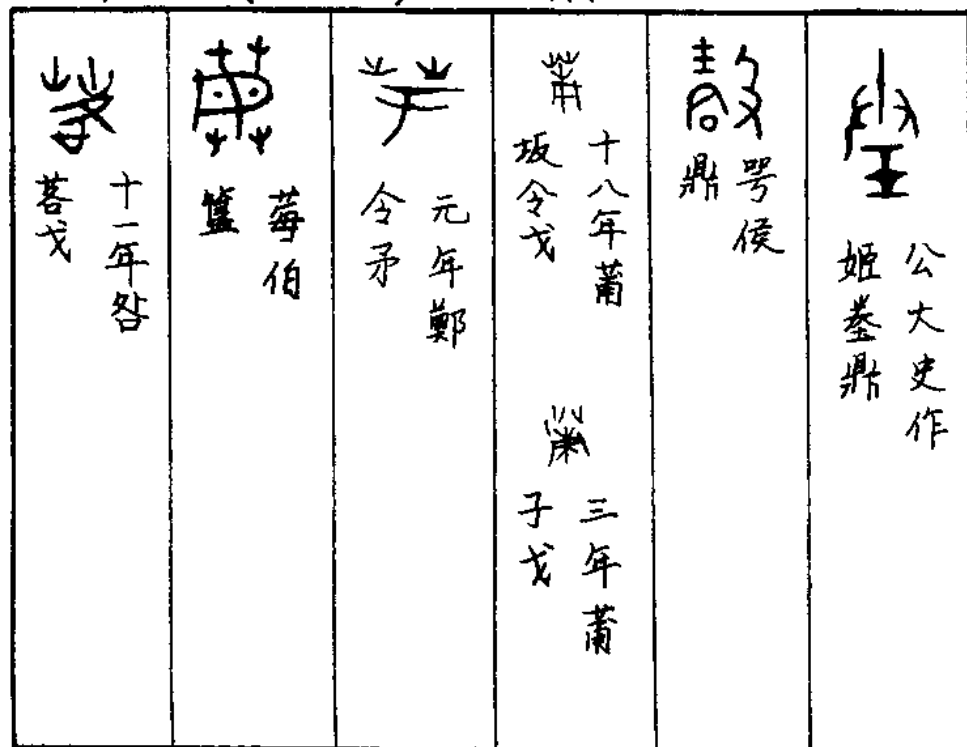 公大史作
姬鼎
咢侯
鼎
十八年莆
坂令戈
三年莆
子戈
元年鄭
令矛
莓伯
十一年咎
茖戈